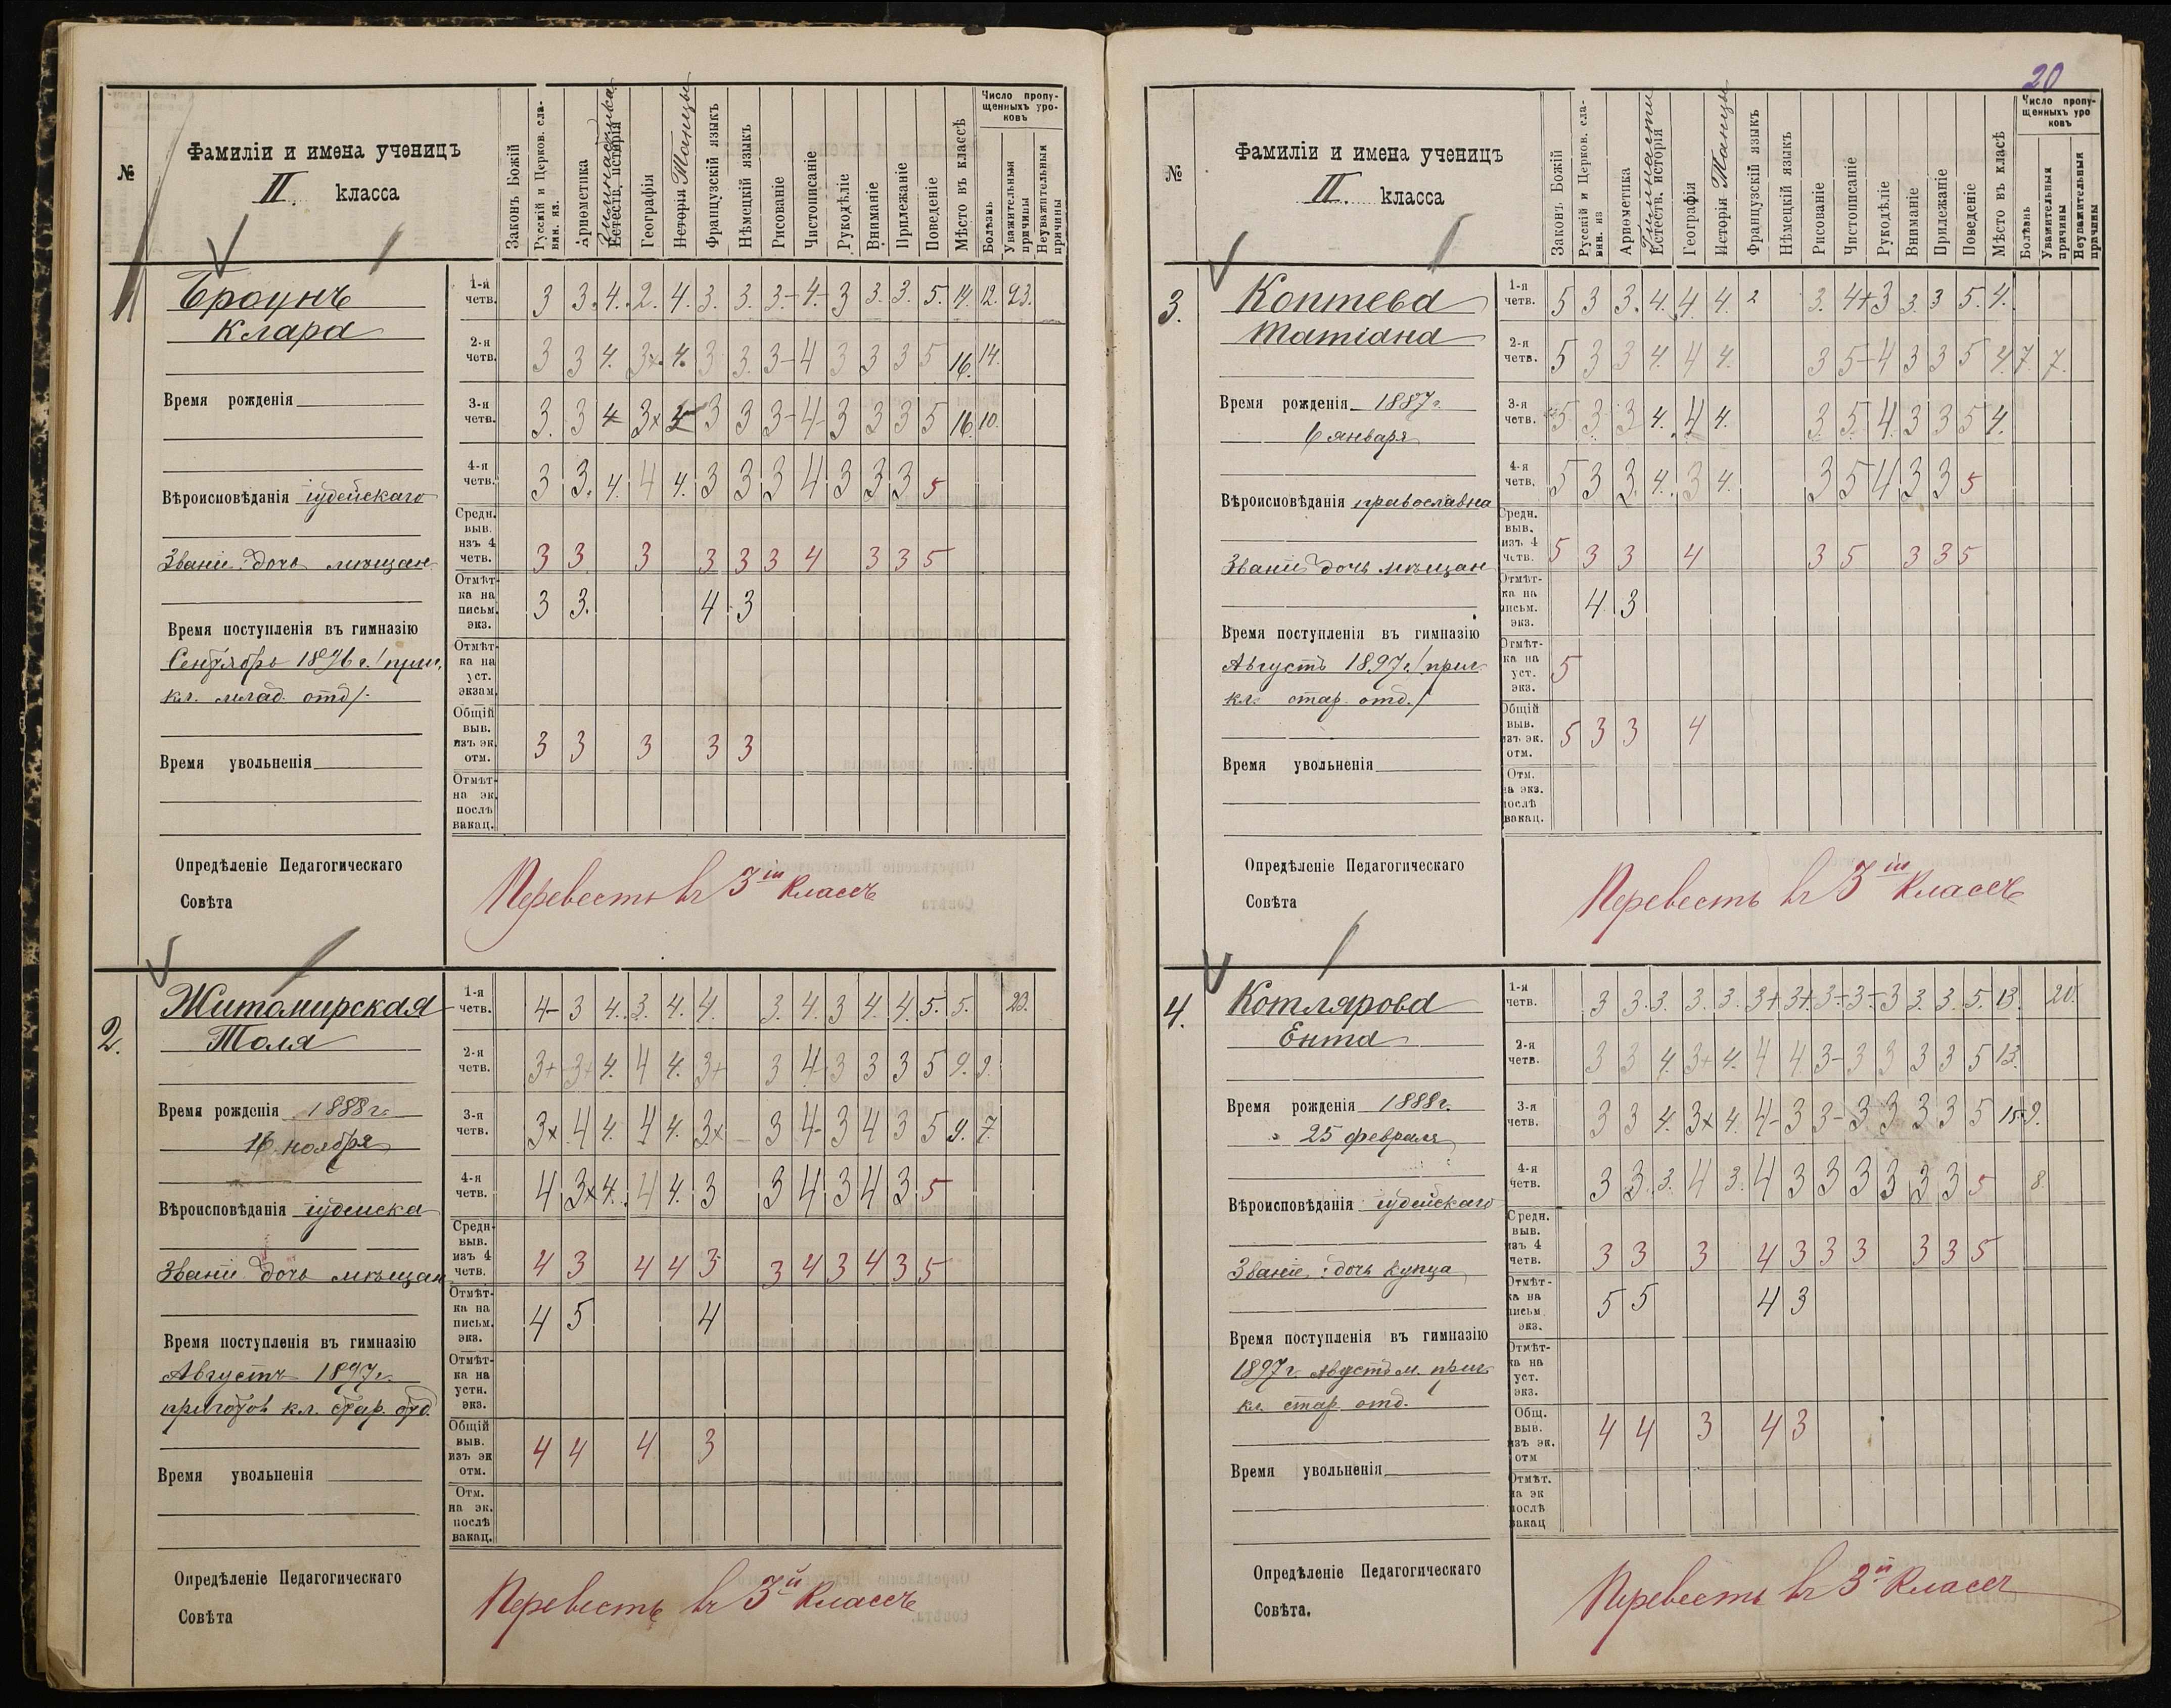 №
Фамиліи и имена ученицъ
II класса
Законъ Божій
Русскій и Церков. славян. яз.
Ариѳметика
Гимнастика
Естеств. исторія
Географія
Исторія Танцы
Французскій языкъ
Нѣмецкій языкъ
Рисованіе
Чистописаніе
Рукодѣліе
Вниманіе
Прилежаніе
Поведеніе
Мѣсто въ классѣ
Число пропу-
щенныхъ уро-
ковъ
Болѣзнь
Уважительныя причины
Неуважительныя причины
1.
Броунъ
Клара
Время рожденія
Вѣроисповѣданія іудейскаго
Званіе: дочь мѣщан.
Время поступленія въ гимназію
Сентябрь 1896 г. /приг.
кл. млад. отд/.
Время увольненія
1-я четв. 3 3. 4. 2. 4. 3. 3. 3- 4- 3 3. 3. 5. 14. 12. 93.
2-я четв. 3 3 4. 3x. 4. 3 3. 3- 4 3 3 3 5 16. 14.
3-я четв. 3. 3 4 3x 4 3 3 3- 4- 3 3 3 5 16. 10.
4-я четв. 3 3. 4. 4 4. 3 3 3 4 3 3 3 5
Средн. выв. изъ 4 четв. 3 3 3 3 3 3 4 3 3 5
Отмѣт-ка на письм. экз. 3 3. 4 3
Отмѣт-ка на уст. экзам.
Общій выв. изъ эк. отм. 3 3 3 3 3
Отмѣт-на эк. послѣ вакац.
Опредѣленіе Педагогическаго
Совѣта
Перевесть въ 3ій классъ
2.
Житомирская
Толя
Время рожденія 1888 г.
16 ноября
Вѣроисповѣданія іудейска
Званіе дочь мѣщан
Время поступленія въ гимназію
Августъ 1897 г.
приготов кл. стар. отд.
Время увольненія
1-я четв. 4- 3 4. 3. 4. 4. 3. 4. 3 4. 4. 5. 5. 23.
2-я четв. 3+ 3+ 4. 4 4. 3+ 3 4- 3 3 3 5 9. 9.
3-я четв. 3x 4 4. 4 4. 3x 3 4- 3 4 3 5 9. 7.
4-я четв. 4 3x 4. 4 4. 3 3 4 3 4 3 5
Средн. выв. изъ 4 четв. 4 3 4 4 3 3 4 3 4 3 5
Отмѣт-ка на письм. экз. 4 5 4
Отмѣт-ка на устн. экз.
Общій выв. изъ эк отм. 4 4 4 3
Отм. на эк. послѣ вакац.
Опредѣленіе Педагогическаго
Совѣта
Перевесть въ 3й классъ
20
№
Фамиліи и имена ученицъ
II. класса
Законъ Божій
Русскій и Церков. славян. яз
Ариѳметика
Гимнасти
Естеств. исторія
Географія
Исторія Танцы
Французскій языкъ
Нѣмецкій языкъ
Рисованіе
Чистописаніе
Рукодѣліе
Вниманіе
Прилежаніе
Поведеніе
Мѣсто въ класѣ
Число пропу-
щенныхъ уро
ковъ
Болѣзнь
Уважительныя причины
Неуважительныя причины
3.
Коптева
Татіана
Время рожденія 1887 г.
6 января
Вѣроисповѣданія православна
Званіе дочь мѣщан
Время поступленія въ гимназію
Августъ 1897 г. /приг.
кл. стар. отд./
Время увольненія
1-я четв. 5 3 3. 4. 4. 4. 2 3. 4+ 3 3. 3 5. 4.
2-я четв. 5 3 3 4. 4 4. 3 5- 4 3 3 5 4. 7. 7.
3-я четв. 5 3 3 4. 4 4. 3 5 4 3 3 5 4.
4-я четв. 5 3 3 4. 3 4. 3 5 4 3 3 5
Средн. выв. изъ 4 четв. 5 3 3 4 3 5 3 3 5
Отмѣт-ка на письм. экз. 4 3
Отмѣт-ка на уст. экз. 5
Общій выв. изъ эк. отм. 5 3 3 4
Отм. на экз. послѣ вакац.
Опредѣленіе Педагогическаго
Совѣта
Перевесть въ 3ій классъ
4.
Котлярова
Ента
Время рожденія 1888 г.
25 февраля
Вѣроисповѣданія іудейскаго
Званіе: дочь купца
Время поступленія въ гимназію
1897 г. Августъ м. приг.
кл. стар. отд.
Время увольненія
1-я четв. 3 3. 3. 3. 3. 3+ 3+ 3- 3- 3 3. 3. 5. 13. 20.
2-я четв. 3 3 4. 3+ 4. 4 4 3- 3 3 3 3 5 13.
3-я четв. 3 3 4. 3x 4. 4- 3 3- 3 3 3 3 5 15. 9.
4-я четв. 3 3. 3. 4 3. 4 3 3 3 3 3 3 5 8.
Средн. выв. изъ 4 четв. 3 3 3 4 3 3 3 3 3 5
Отмѣт-ка на письм экз. 5 5 4 3
Отмѣт-ка на уст. экз.
Общ. выв. изъ эк. отм 4 4 3 4 3
Отмѣт. на эк послѣ вакац
Опредѣленіе Педагогическаго
Совѣта.
Перевесть въ 3й классъ